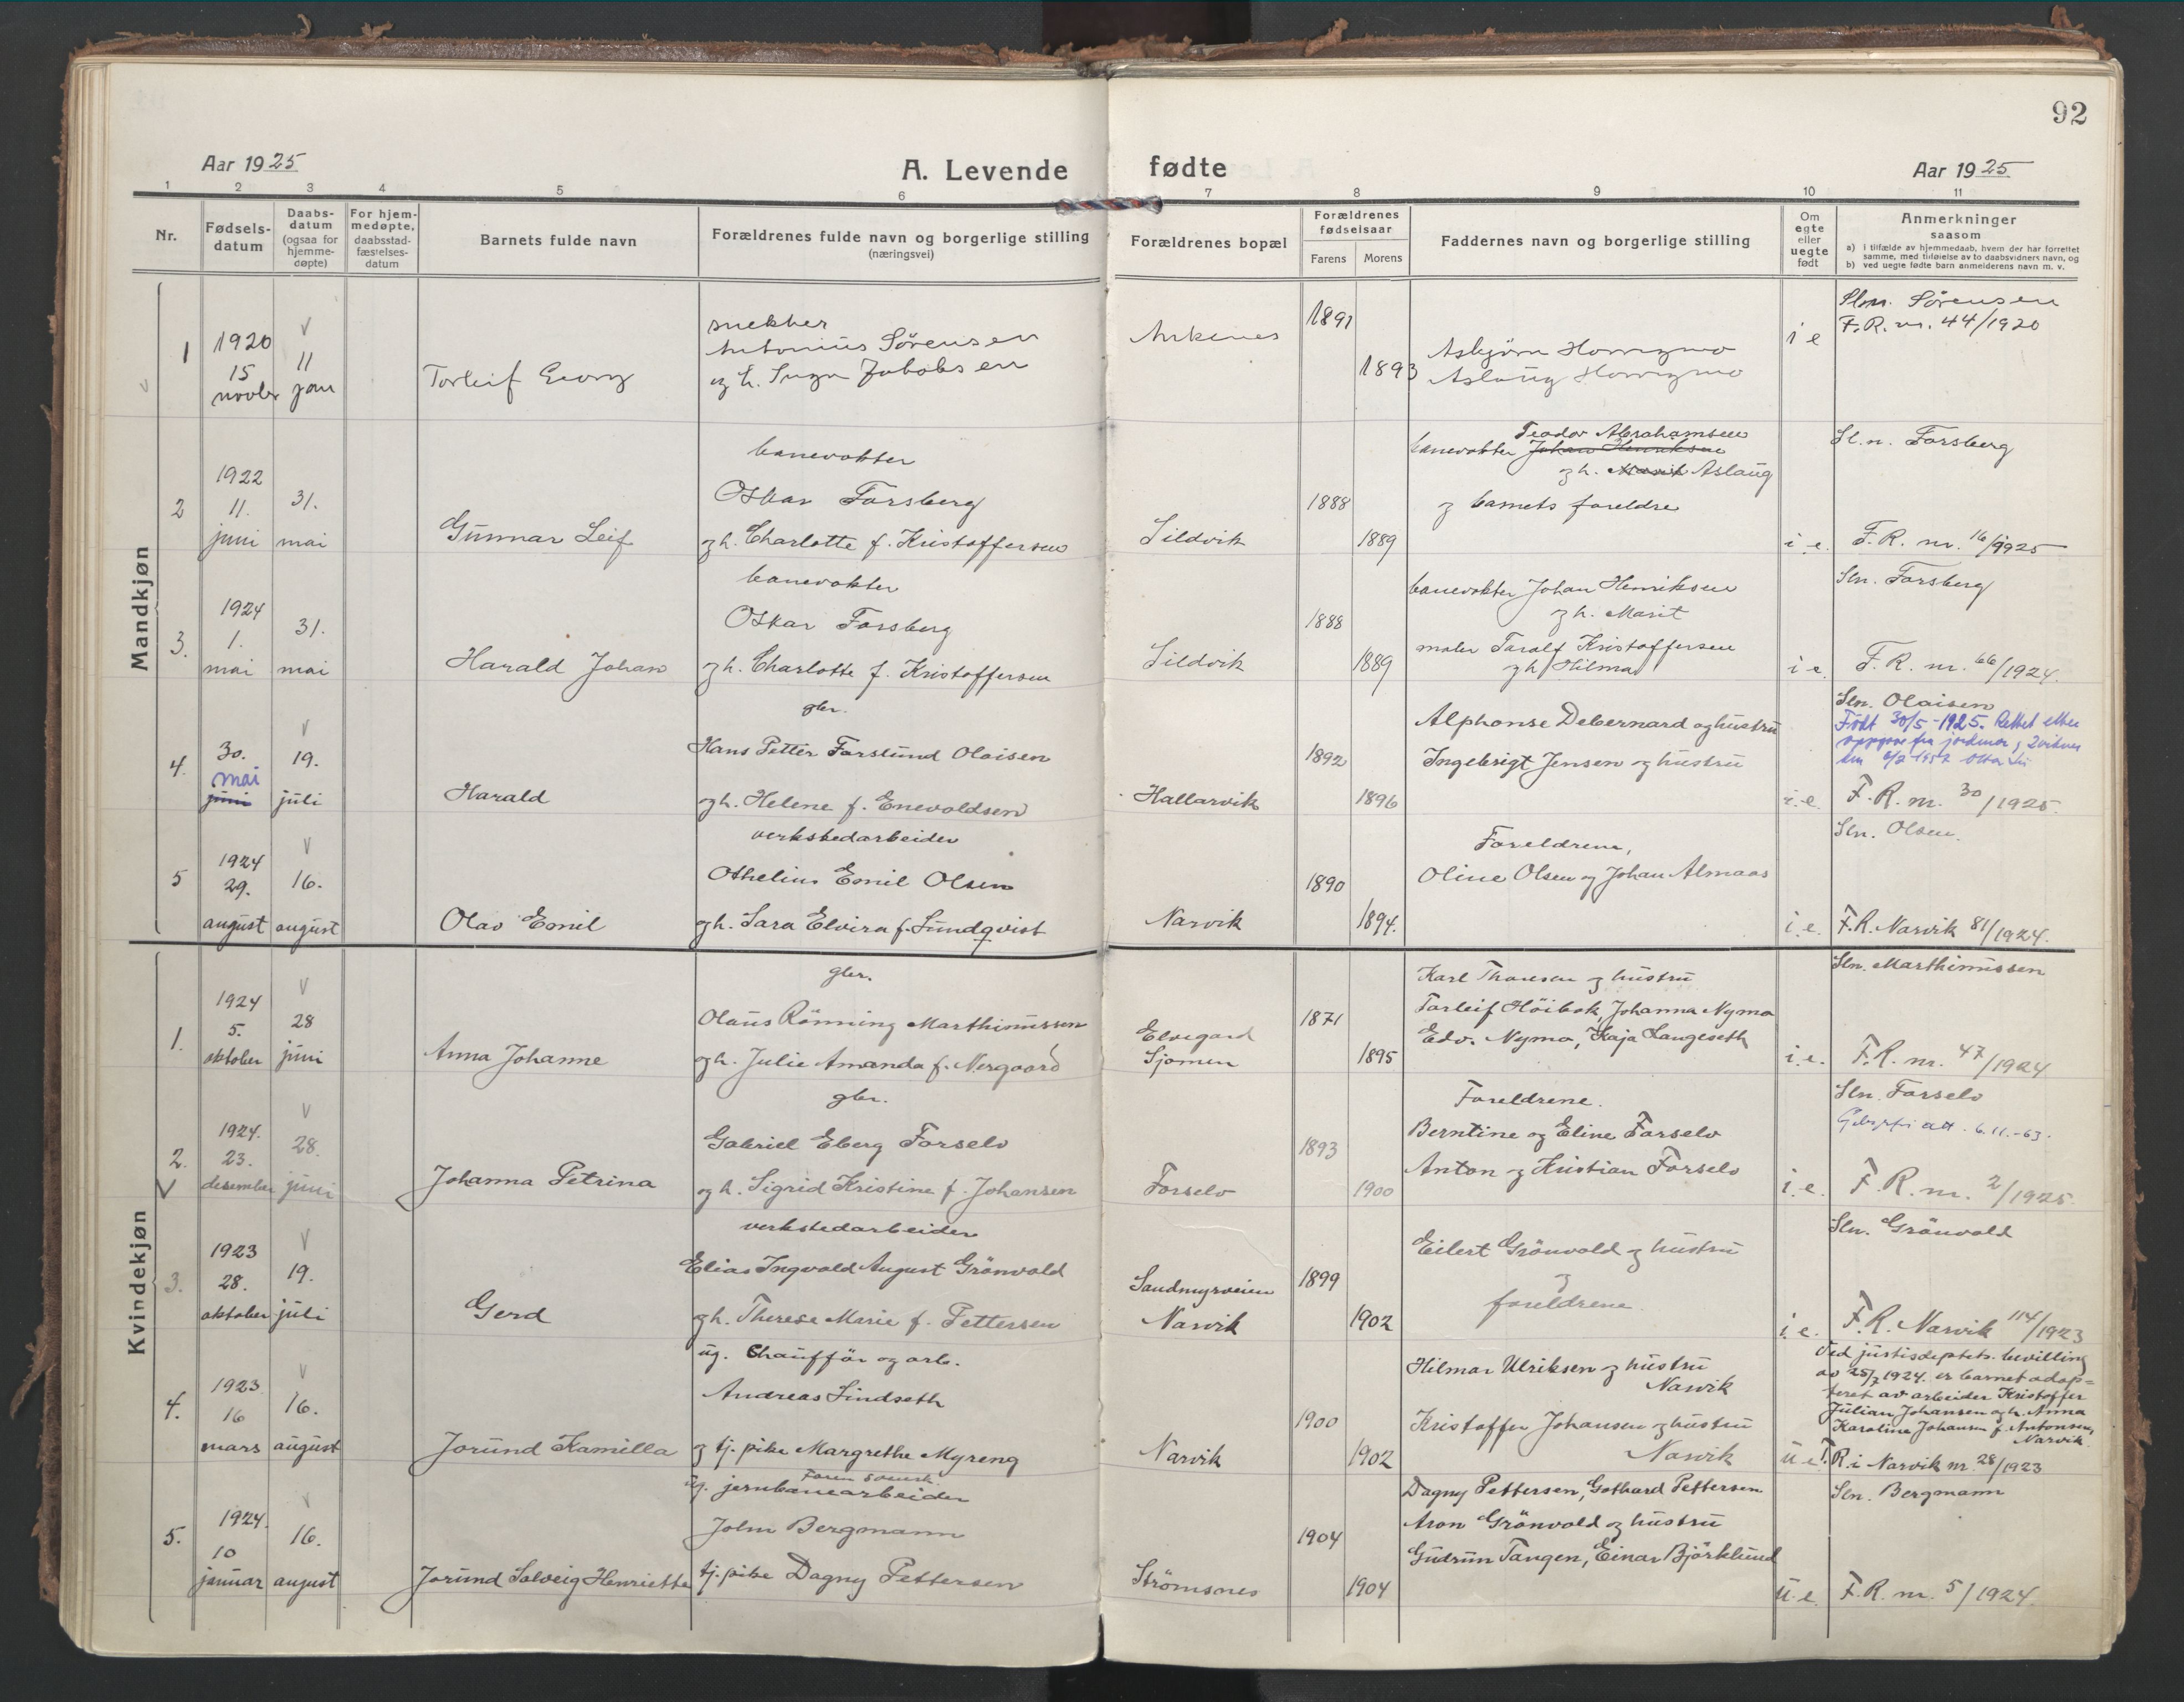 92
Aar 1925
A. Levende fødte
Aar 1925
1 2 3 4 5 6 7 8 9 10 11
Nr.
Fødsels-
datum
Daabs-
datum
(ogsaa for
hjemme-
døpte)
For hjem-
medøpte,
daabsstad-
fæstelses-
datum
Barnets fulde navn
Forældrenes fulde navn og borgerlige stilling
(næringsvei)
Forældrenes bopæl
Forældrenes
fødselsaar
Farens Morens
Faddernes navn og borgerlige stilling
Om
egte
eller
uegte
født
Anmerkninger
saasom
a) i tilfælde av hjemmedaab, hvem der har forrettet
samme, med tilføielse av to daabsvidners navn, og
b) ved uegte fødte barn anmelderens navn m. v.
Mandkjøn
1
1920
15
novbr
11
jan
Torleif Georg
snekker
Antonius Sörensen
og h. Inga Jakobsen
Ankenes
1891
1893
Asbjörn Horrigmo
Aslaug Horrigmo
i e
Slnn. Sörensen
F.R. nr. 44/1920
2
1922
11.
juni
31.
mai
Gunnar Leif
banevokter
Oskar Forsberg
og h. Charlotte f. Kristoffersen
Sildvik
1888
1889
Teodor Abrahamsen
banevokter Johan Henriksen
og h. Marit Aslaug
og barnets foreldre
i.e.
Sl.n. Forsberg
F.R. nr. 16/1925
3.
1924
1.
mai
31.
mai
Harald Johan
banevokter
Oskar Forsberg
og h. Charlotte f. Kristoffersen
Sildvik
1888
1889
banevokter Johan Henriksen
og h. Marit
maler Toralf Kristoffersen
og h Hilma
i e.
Sln. Forsberg
F.R. nr. 66/1924.
4.
30.
mai
juni
19.
juli
Harald
gbr.
Hans Petter Forslund Olaisen
og h. Helene f. Enevoldsen
Hallarvik
1892
1896
Alphonse Debernard og hustru
Ingebrigt Jensen og hustru
i.e.
Sln. Olaisen
Født 30/5-1925. Rettet etter
oppgave fra jordmor og 2 vidner
F.R. nr. 30/1925.
5
1924
29.
august
16.
august
Olav Emil
verkstedarbeider
Othelius Emil Olsen
og h. Sara Elvira f. Lundqvist
Narvik
1890
1894.
Foreldrene,
Oline Olsen og Johan Almaas
i.e.
Sln. Olsen.
F.R. Narvik 81/1924.
Kvindekjøn
1.
1924
5.
oktober
28
juni
Anna Johanne
gbr.
Olaus Rönning Marthinussen
og h. Julie Amanda f. Nergaard
Elvegard
Sjomen
1871
1895
Karl Thoresen og hustru
Torleif Höibok, Johanna Nymo
Edv. Nymo, Kaja Langeseth
i.e.
Sln. Marthinussen
F.R. nr. 47/1924
2.
1924.
23.
desember
28.
juni
Johanna Petrina
gbr.
Gabriel Eberg Forselv
og h. Sigrid Kristine f. Johansen
Forselv
1893
1900
Foreldrene.
Berntine og Eline Forselv
Anton og Kristian Forselv
i.e.
Sln. Forselv
att. 6.11.-63.
F.R. nr. 2/1925.
3.
1923
28.
oktober
19.
juli
Gerd
verkstedarbeider
Elias Ingvald August Grönvold
og h. Therese Marie f. Pettersen
Sandmyrveien
Narvik
1899
1902
Eilert Grönvold og hustru
og
foreldrene.
i.e.
Sln. Grönvold
F.R. Narvik 114/1923
4.
1923
16
mars
16.
august
Jorund Kamilla
ug. Chaufför og arb.
Andreas Lindseth
og tj. pike Margrethe Myreng
Narvik
1900
1902
Hilmar Ulriksen og hustru
Narvik
Kristoffer Johansen og hustru
Narvik
u e.
Ved justisdeptets. bevilling
av 25/7 1924. er barnet adop-
teret av arbeider Kristoffer
Julian Johansen og h. Anna
Karoline Johansen f. Antonsen,
Narvik.
F.R. i Narvik nr. 28/1923
5.
1924.
10
januar
16.
august
Jorund Solveig Henriette
Faren svensk
ug. jernbanearbeider
John Bergmann
tj. pike Dagny Pettersen
Strömsnes
1904
1904
Dagny Pettersen, Gothard Pettersen
Aron Grönvold og hustru
Gudrun Tangen, Einar Björklund
u.e.
Sln. Bergmann
F.R. nr. 5/1924.